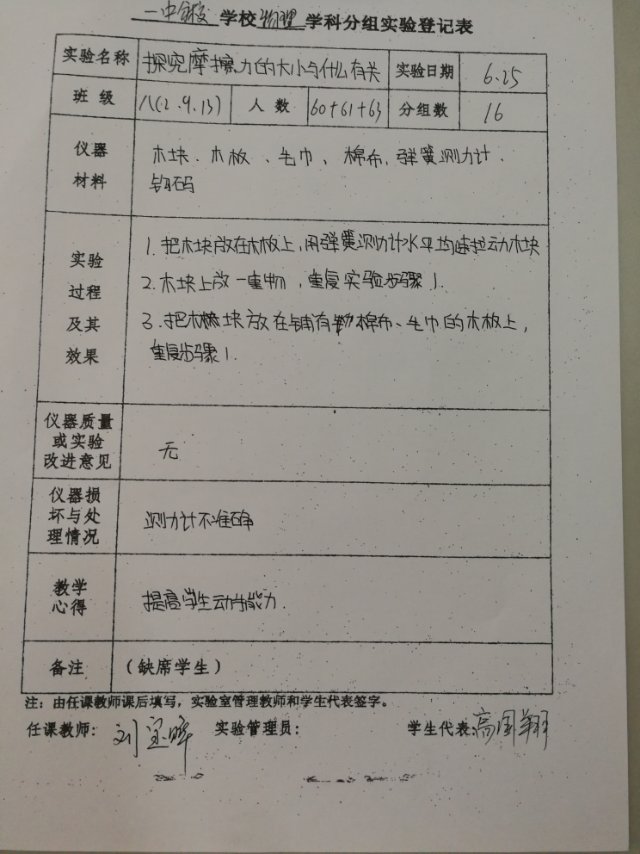 一中学校 学校物理学科分组实验登记表
实验名称 探究摩擦力的大小与什么有关 实验日期 6.25
班 级 八(2.9.13) 人 数 60+61+63 分组数 16
仪器
材料
木块、木板、毛巾、棉布、弹簧测力计、
钩码
实验
过程
及其
效果
1.把木块放在木板上,用弹簧测力计水平匀速拉动木块
2.木块上放一重物,重复实验步骤1.
3.把木块放在铺有棉布、毛巾的木板上,
重复步骤1.
仪器质量
或实验
改进意见
无
仪器损
坏与处
理情况
测力计不准确
教学
心得
提高学生动手能力.
备注 (缺席学生)
注:由任课教师课后填写,实验室管理教师和学生代表签字。
任课教师: 刘宝晖 实验管理员: 学生代表:高国翔